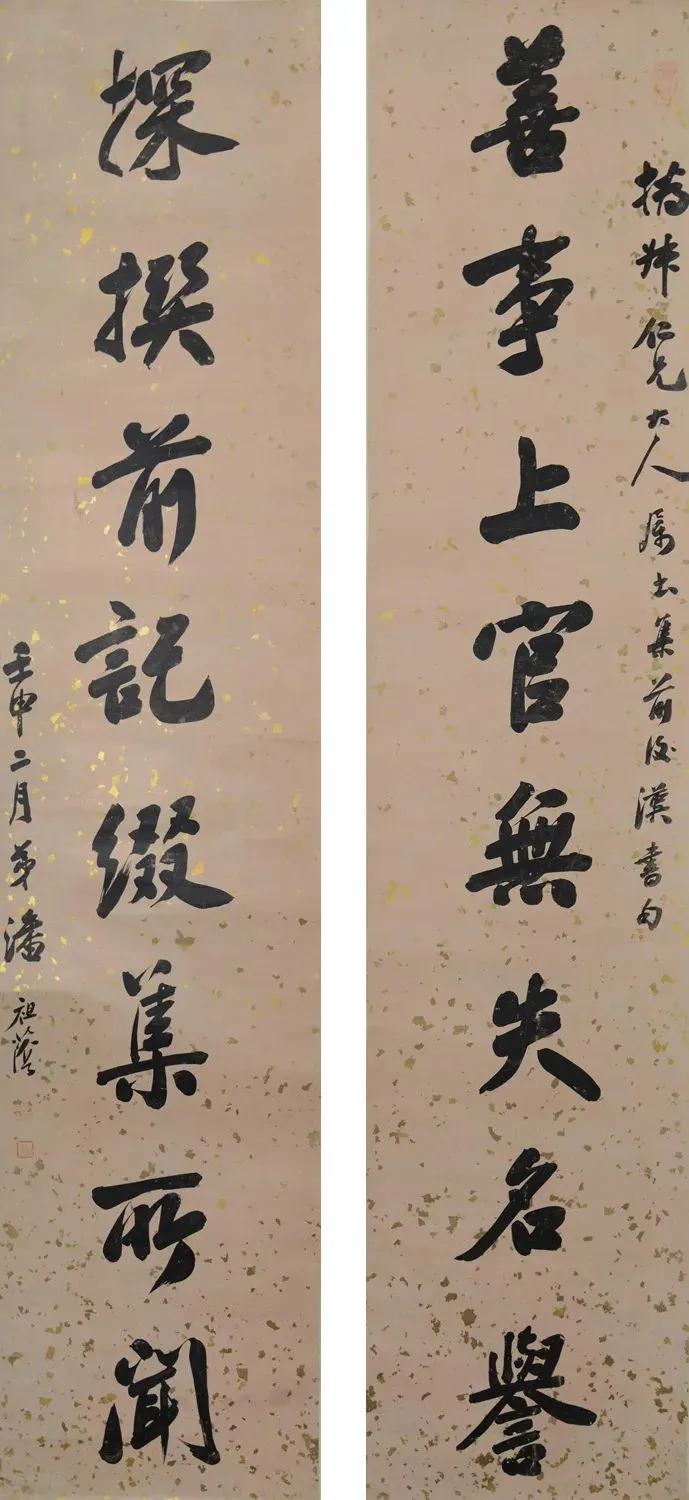 仁兄大人属书集前后漢書句
善事上官無失名譽
探撰前記綴集所聞
壬申二月弟潘祖蔭